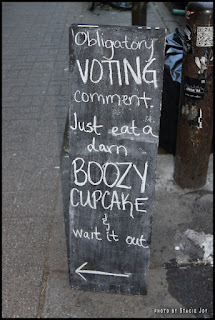 Obligatory
VOTING
comment.
Just eat a
darn
BOOZY
CUPCAKE
&
wait it out
PHOTO BY STACIE JOY